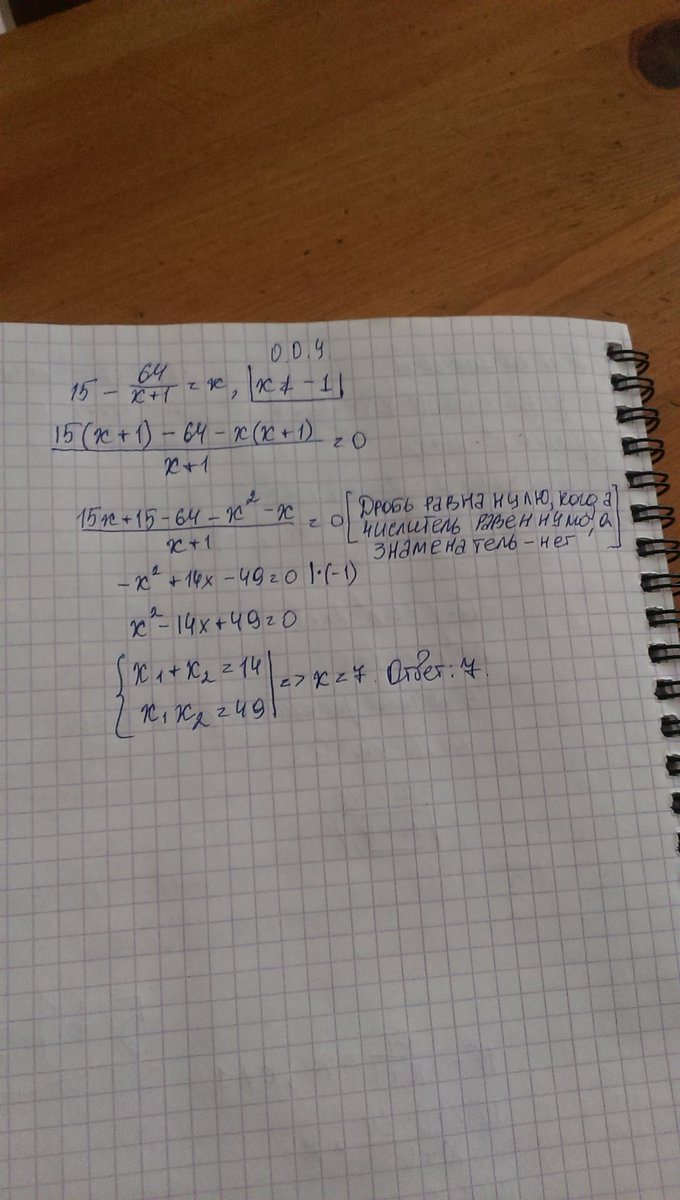 О.О.У.
15 - 64/(x+1) = x, |x ≠ -1|
(15(x+1) - 64 - x(x+1))/(x+1) = 0
(15x+15-64-x²-x)/(x+1) = 0 [Дробь равна нулю, когда
числитель равен нулю, а
знаменатель - нет]
-x² + 14x - 49 = 0 |·(-1)
x² - 14x + 49 = 0
{x₁ + x₂ = 14
x₁x₂ = 49 | => x = 7. Ответ: 7.